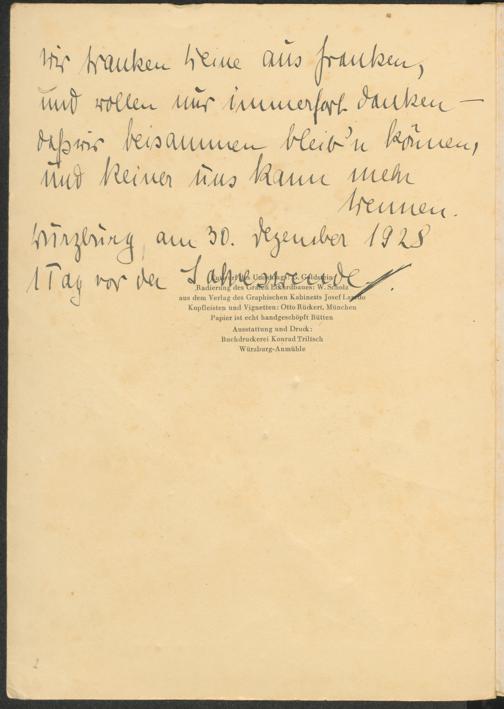 Wir tranken Weine aus Franken,
und wollen nur immerfort danken –
daß wir beisammen bleib'n können,
und keiner uns kann mehr
trennen.
Würzburg, am 30. Dezember 1928
1 Tag vor der Jahreswende.
Radierung des Grafen Eckardbaues: W. Scholz
aus dem Verlag des Graphischen Kabinetts Josef
Kopfleisten und Vignetten: Otto Rückert, München
Papier ist echt handgeschöpft Bütten
Ausstattung und Druck:
Buchdruckerei Konrad Triltsch
Würzburg-Aumühle